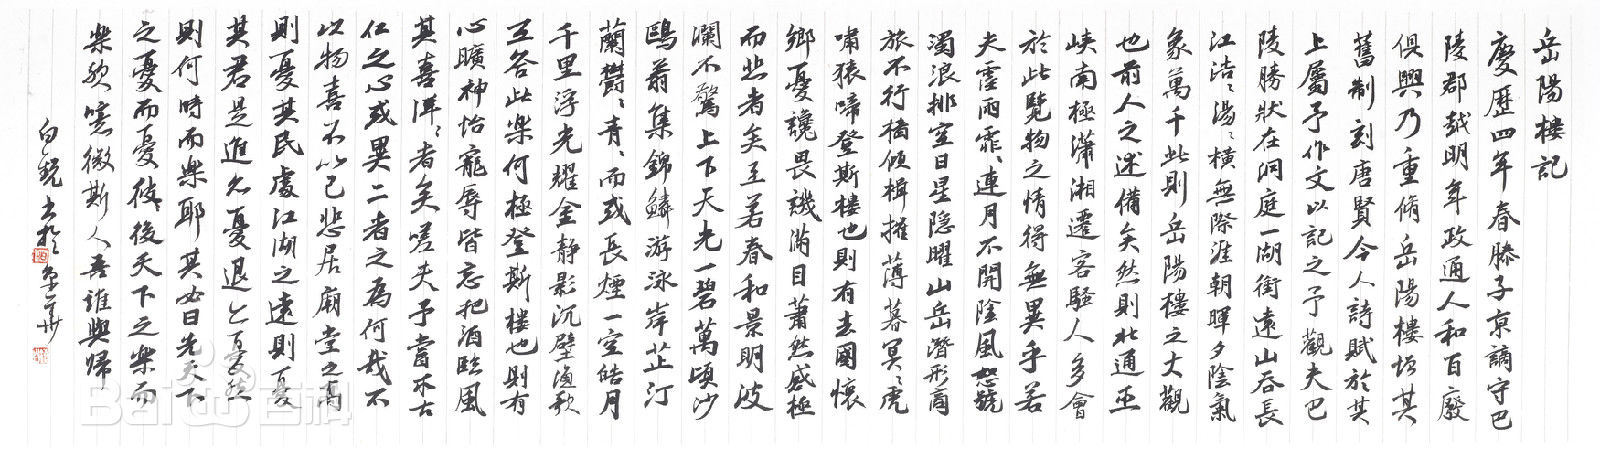 岳陽樓記
慶歷四年春滕子京謫守巴
陵郡越明年政通人和百廢
俱興乃重脩岳陽樓增其
舊制刻唐賢今人詩賦於其
上屬予作文以記之予觀夫巴
陵勝狀在洞庭一湖銜遠山吞長
江浩〻湯〻橫無際涯朝暉夕陰氣
象萬千此則岳陽樓之大觀
也前人之述備矣然則北通巫
峽南極瀟湘遷客騷人多會
於此覽物之情得無異乎若
夫霪雨霏〻連月不開陰風怒號
濁浪排空日星隱曜山岳潛形商
旅不行檣傾楫摧薄暮冥〻虎
嘯猿啼登斯樓也則有去國懷
鄉憂讒畏譏滿目蕭然感極
而悲者矣至若春和景明波
瀾不驚上下天光一碧萬頃沙
鷗翔集錦鱗游泳岸芷汀
蘭鬱〻青〻而或長煙一空皓月
千里浮光耀金靜影沉壁漁歌
互答此樂何極登斯樓也則有
心曠神怡寵辱皆忘把酒臨風
其喜洋〻者矣嗟夫予嘗求古
仁之心或異二者之為何哉不
以物喜不以己悲居廟堂之高
則憂其民處江湖之遠則憂
其君是進亦憂退亦憂然
則何時而樂耶其必曰先天下
之憂而憂後天下之樂而
樂歟噫微斯人吾誰與歸
白銳書於京華
Baidu百科